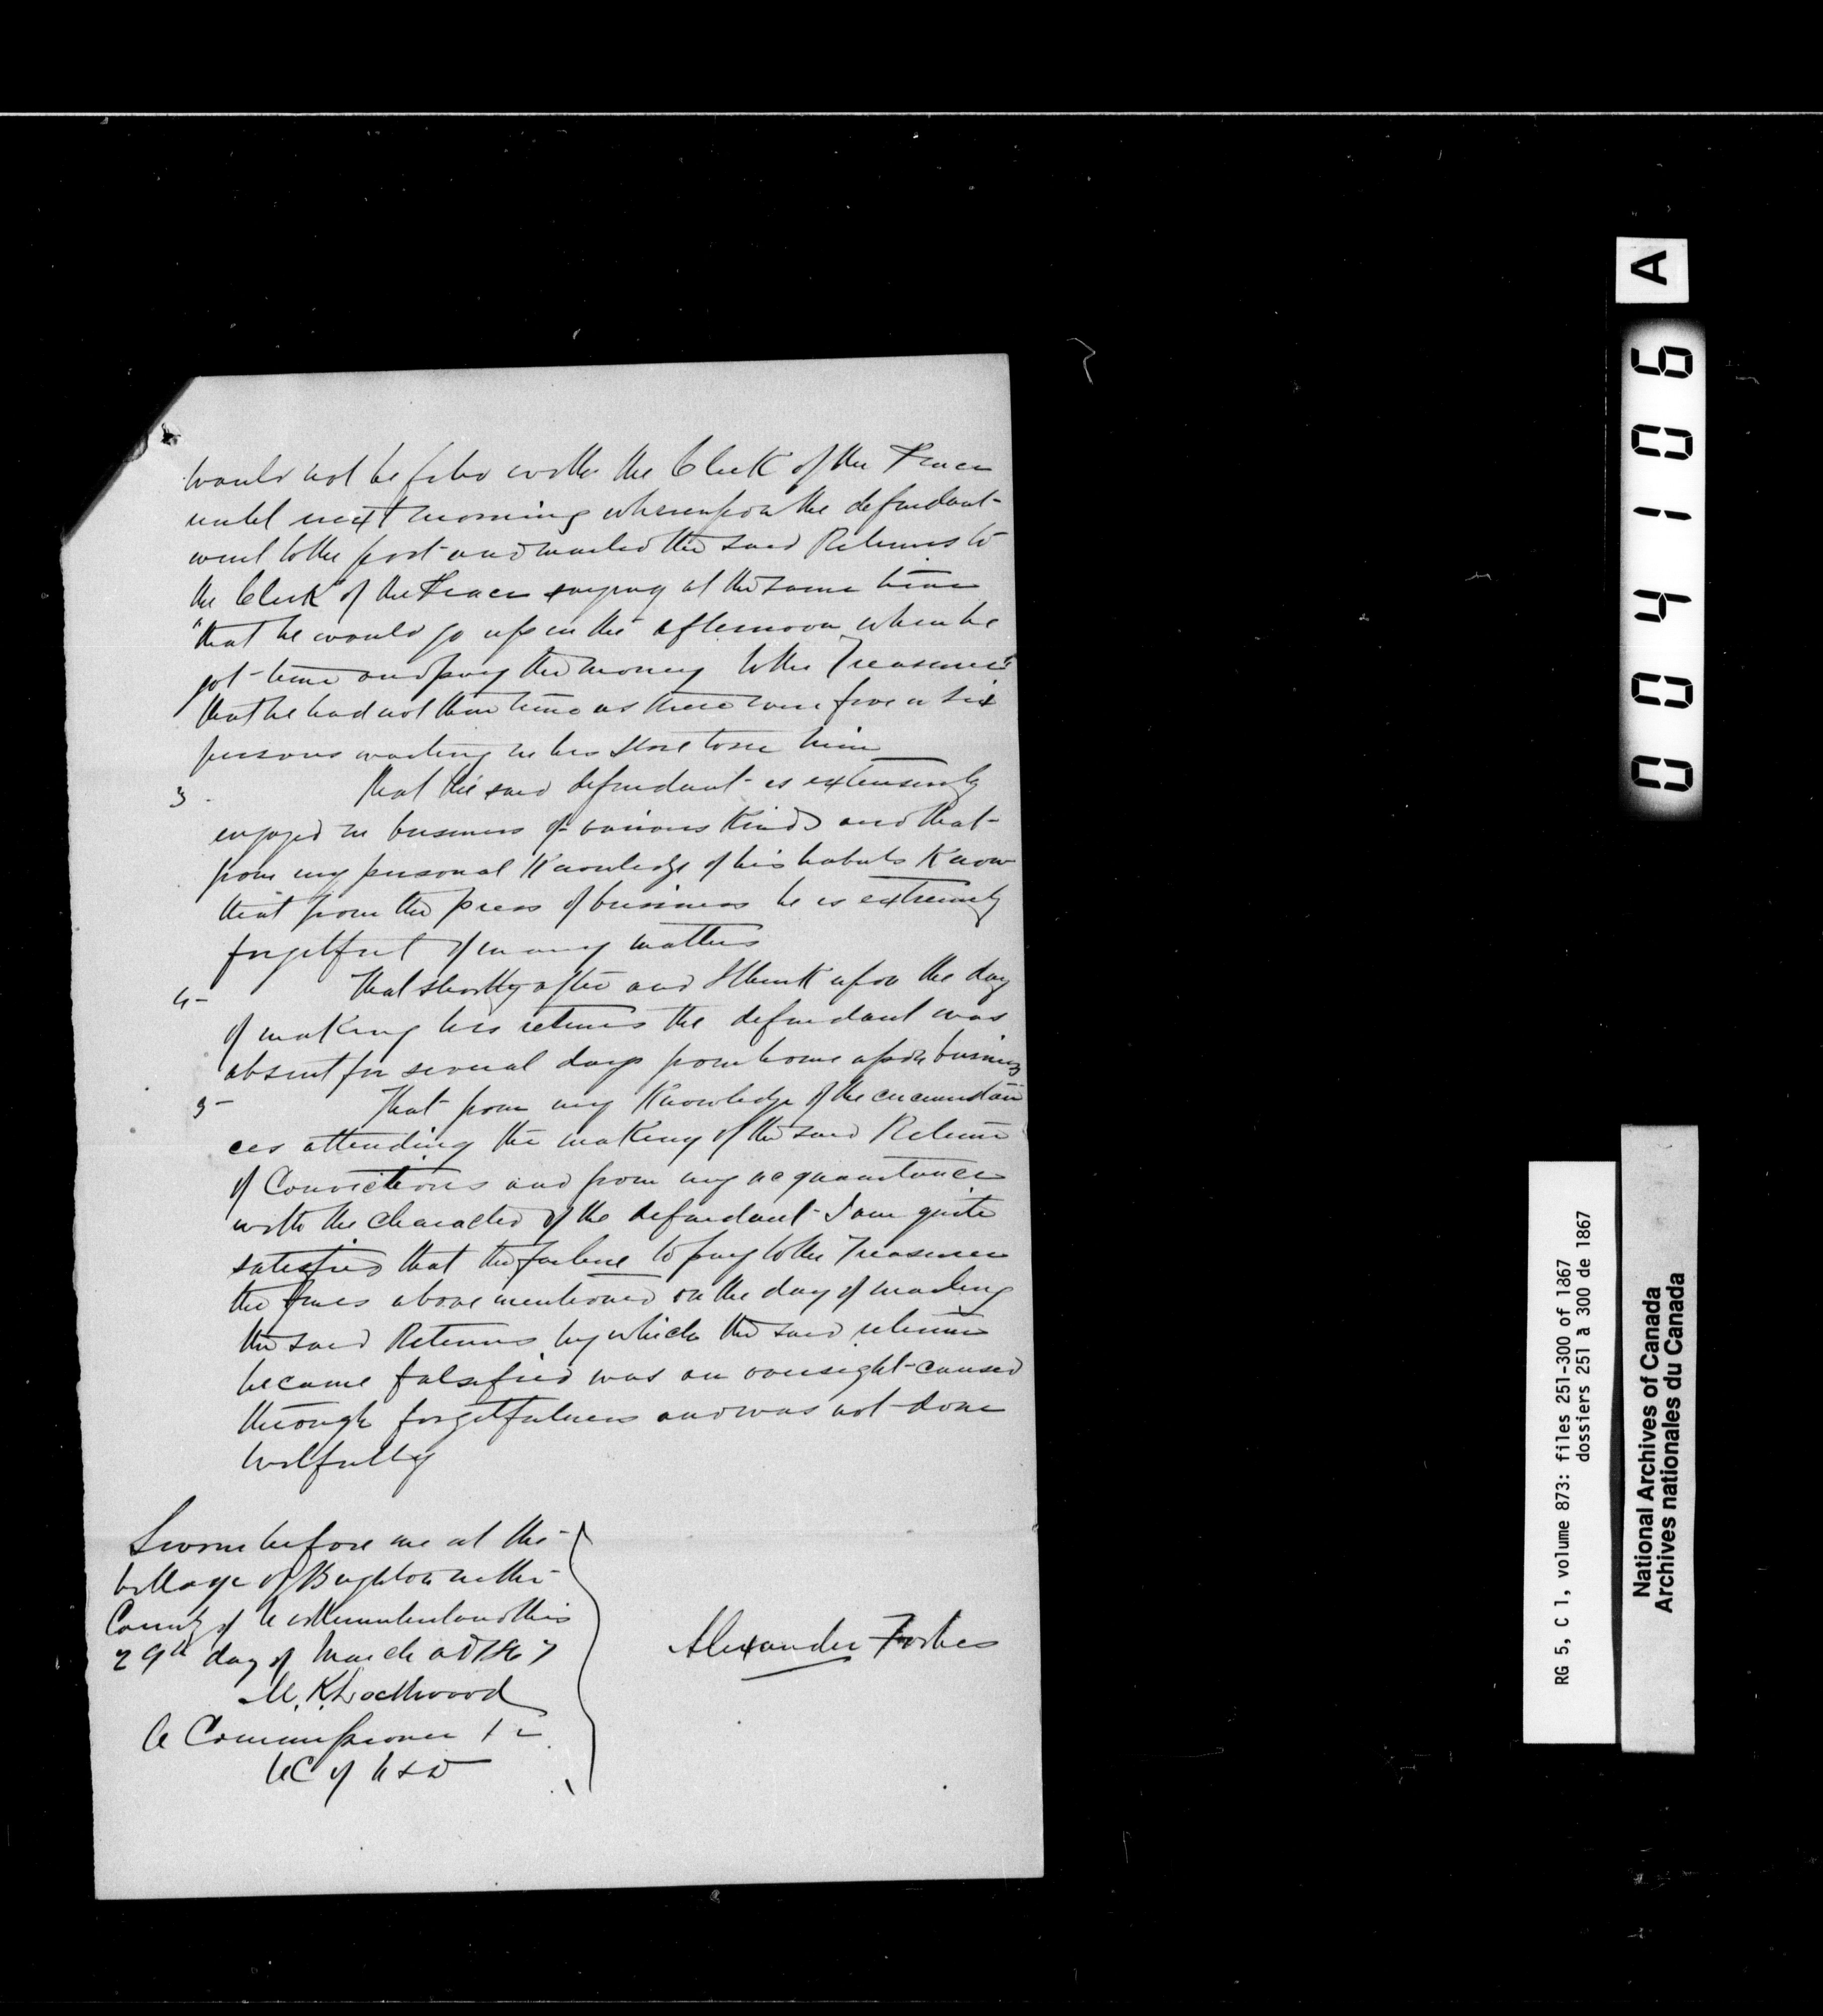 would not be filed with the Clerk of the Peace
until next morning whereupon the defendant
went to the post and mailed the said Returns to
the Clerk of the Peace saying at the same time
"that he would go up in the afternoon when he
got time and pay the money to the Treasurer"
that he had not then time as there were five or six
persons waiting in his Store to see him
3 - That the said defendant is extensively
engaged in business of various Kinds and that
from my personal Knowledge of his habits Know
that from the press of business he is extremely
forgetful of many matters
4 - That shortly after and I think upon the day
of making his returns the defendant was
absent for several days from home upon business
5 - That from my Knowledge of the circumstan
ces attending the making of the said Return
of Convictions and from my acquaintance
with the character of the defendant I am quite
satisfied that the failure to pay to the Treasurer
the fines above mentioned on the day of mailing
the said Returns by which the said returns
became falsified was an oversight caused
through forgetfulness and was not done
wilfully
Sworn before me at the
Village of Brighton in the
County of Northumberland this
29th day of March AD 1867
M. K. Lockwood
A Commissioner &c
UC of N & D
Alexander Forbes
A
004106
RG 5, C 1, volume 873: files 251-300 of 1867
dossiers 251 à 300 de 1867
National Archives of Canada
Archives nationales du Canada